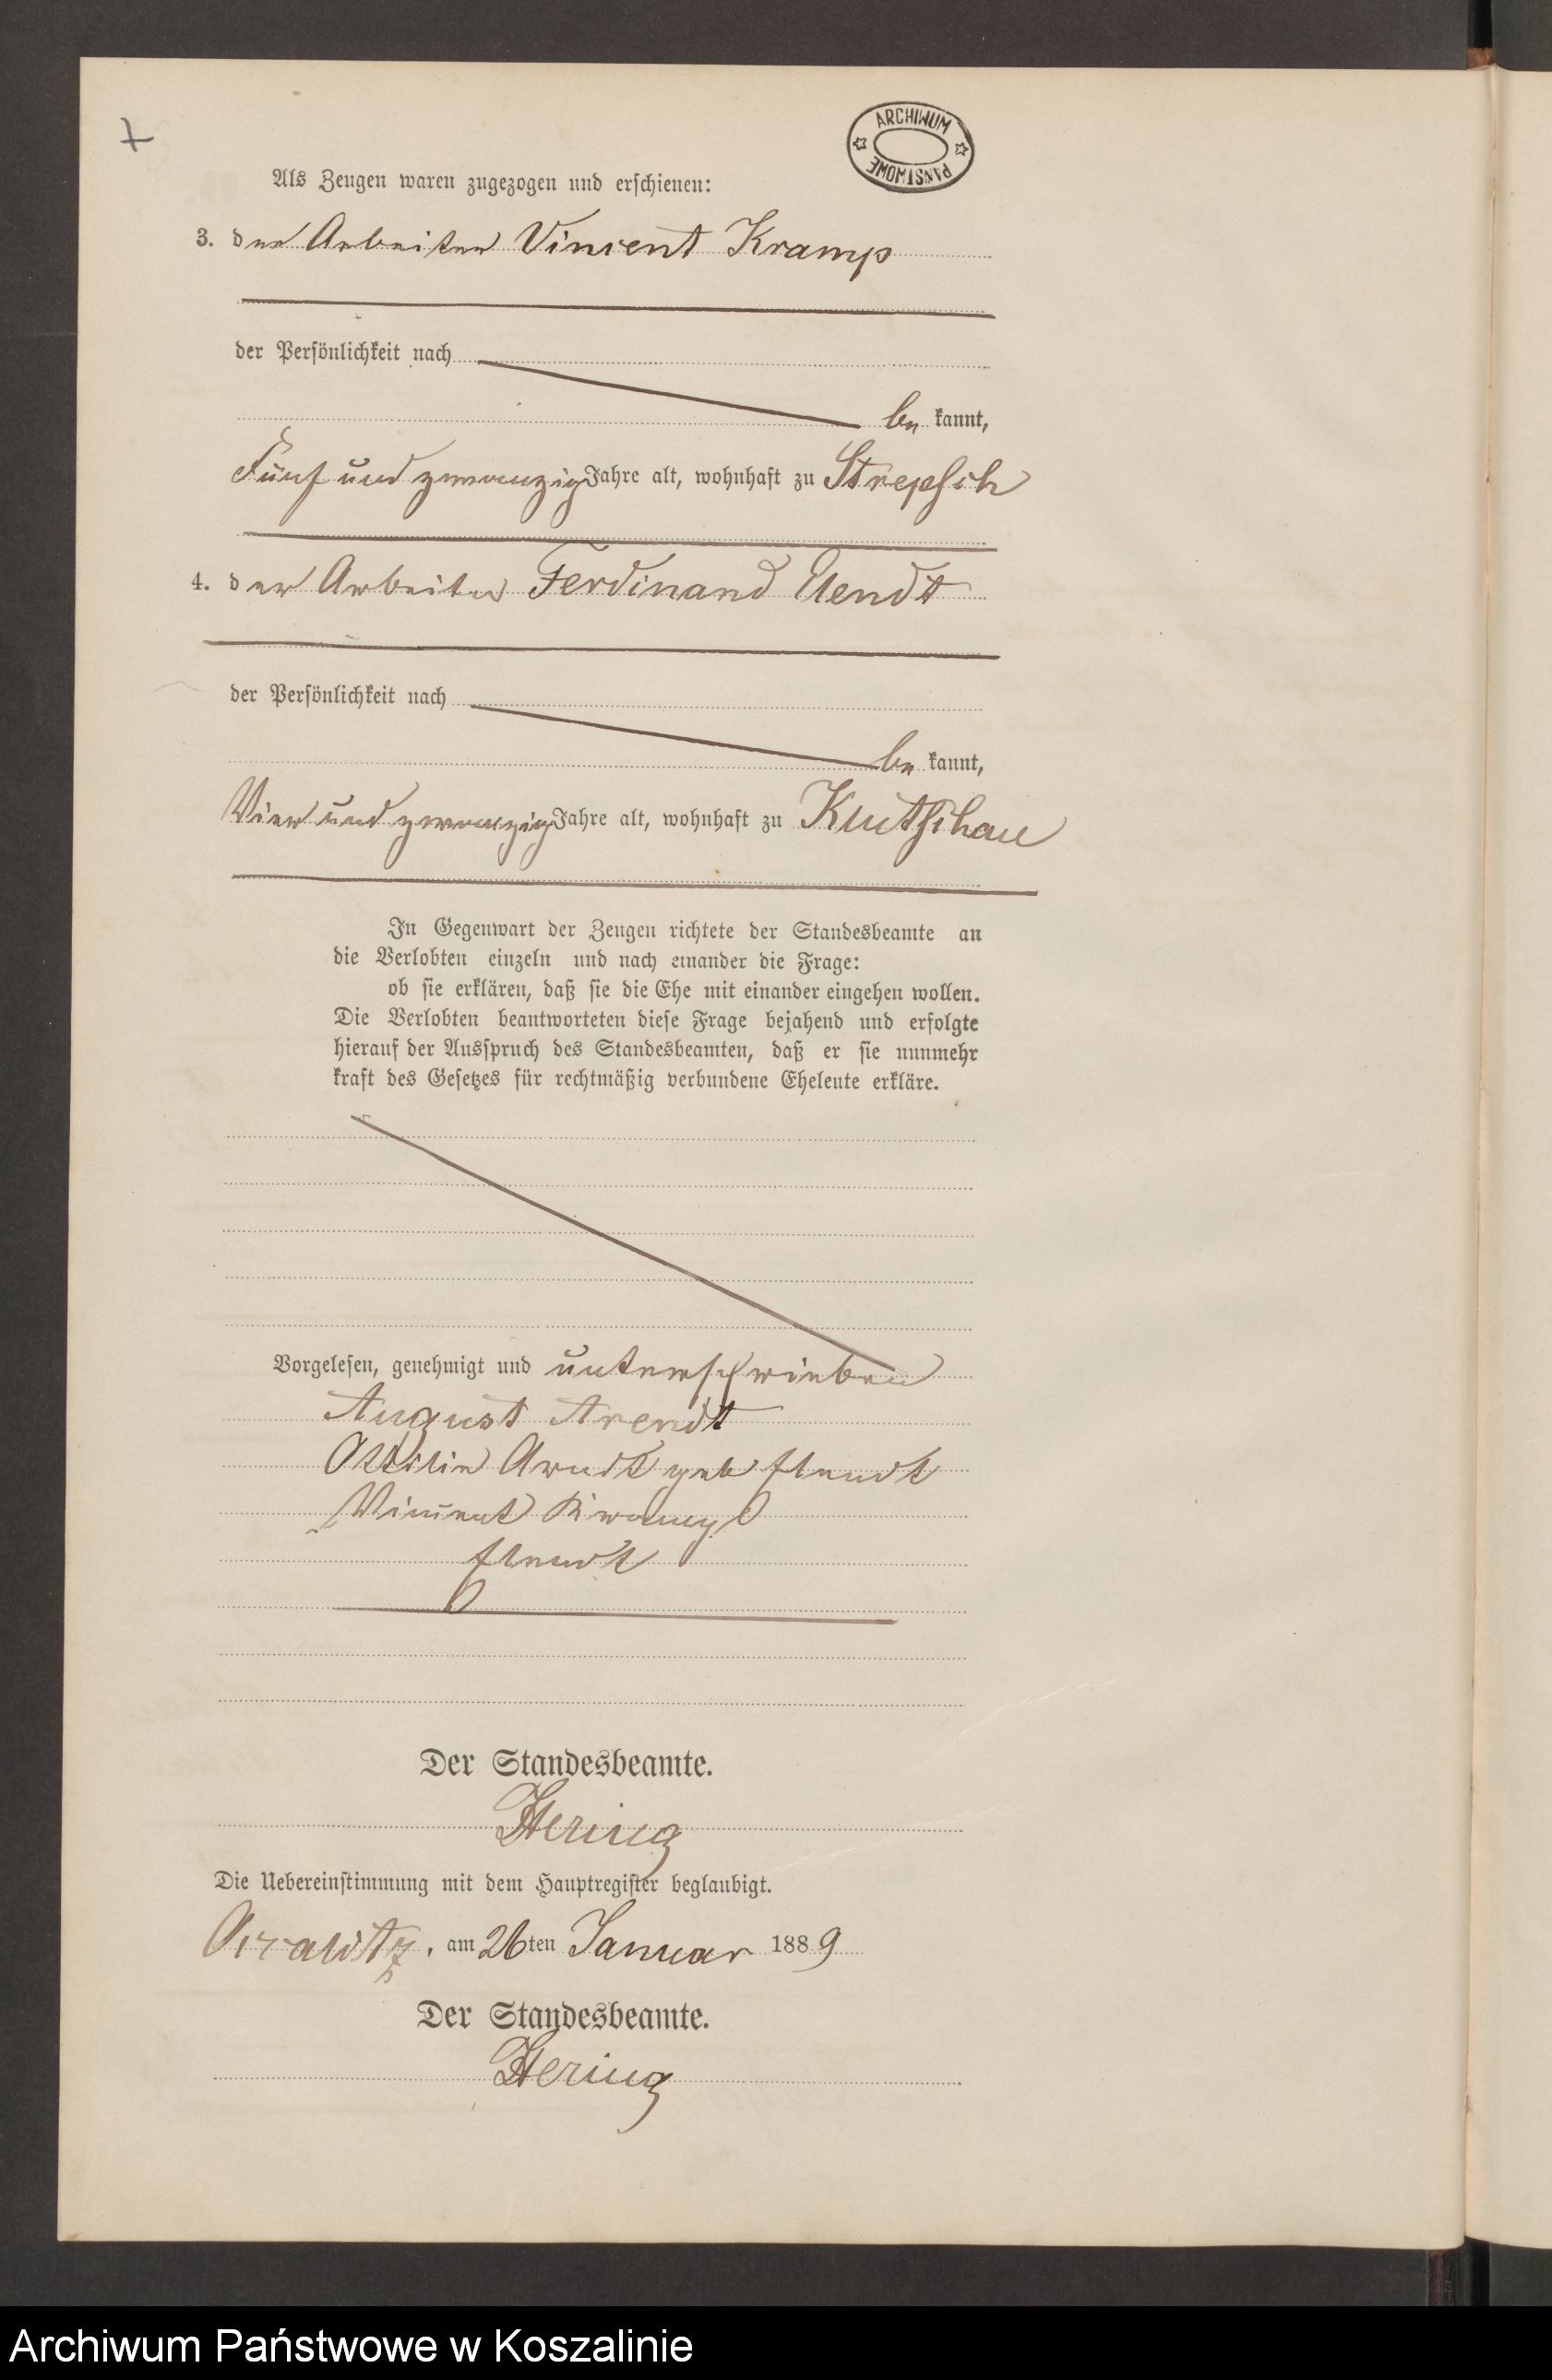 ARCHIWUM PAŃSTWOWE
Als Zeugen waren zugezogen und erschienen:
3. der Arbeiter Vincent Kramp
der Persönlichkeit nach
be kannt,
Fünf und zwanzig Jahre alt, wohnhaft zu Strepsch
4. der Arbeiter Ferdinand
der Persönlichkeit nach
be kannt,
Vier und zwanzig Jahre alt, wohnhaft zu Klutschau
In Gegenwart der Zeugen richtete der Standesbeamte an
die Verlobten einzeln und nach einander die Frage:
ob sie erklären, daß sie die Ehe mit einander eingehen wollen.
Die Verlobten beantworteten diese Frage bejahend und erfolgte
hierauf der Ausspruch des Standesbeamten, daß er sie nunmehr
kraft des Gesetzes für rechtmäßig verbundene Eheleute erkläre.
Vorgelesen, genehmigt und unterschrieben
August Arendt
Arndt geb
Vincent Kramp
Der Standesbeamte.
Hering
Die Uebereinstimmung mit dem Hauptregister beglaubigt.
am 26ten Januar 1889
Der Standesbeamte.
Hering
Archiwum Państwowe w Koszalinie